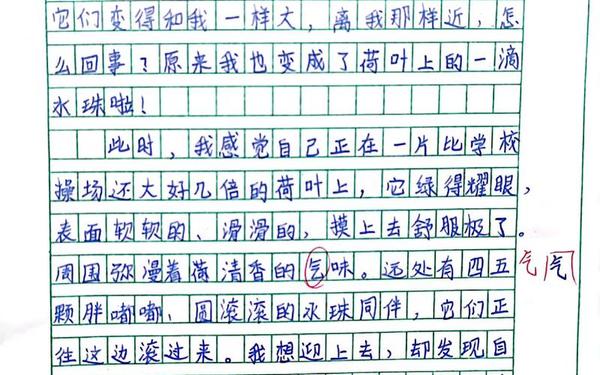 它们变得和我一样大，离我那样近，怎
么回事？原来我也变成了荷叶上的一滴
水珠啦！
此时，我感觉自己正在一片比学校
操场还大好几倍的荷叶上，它绿得耀眼，
表面软软的、滑滑的，摸上去舒服极了。
周围弥漫着荷清香的气味。远处有四五 气 气
颗胖嘟嘟、圆滚滚的水珠同伴，它们正
往这边滚过来。我想迎上去，却发现自